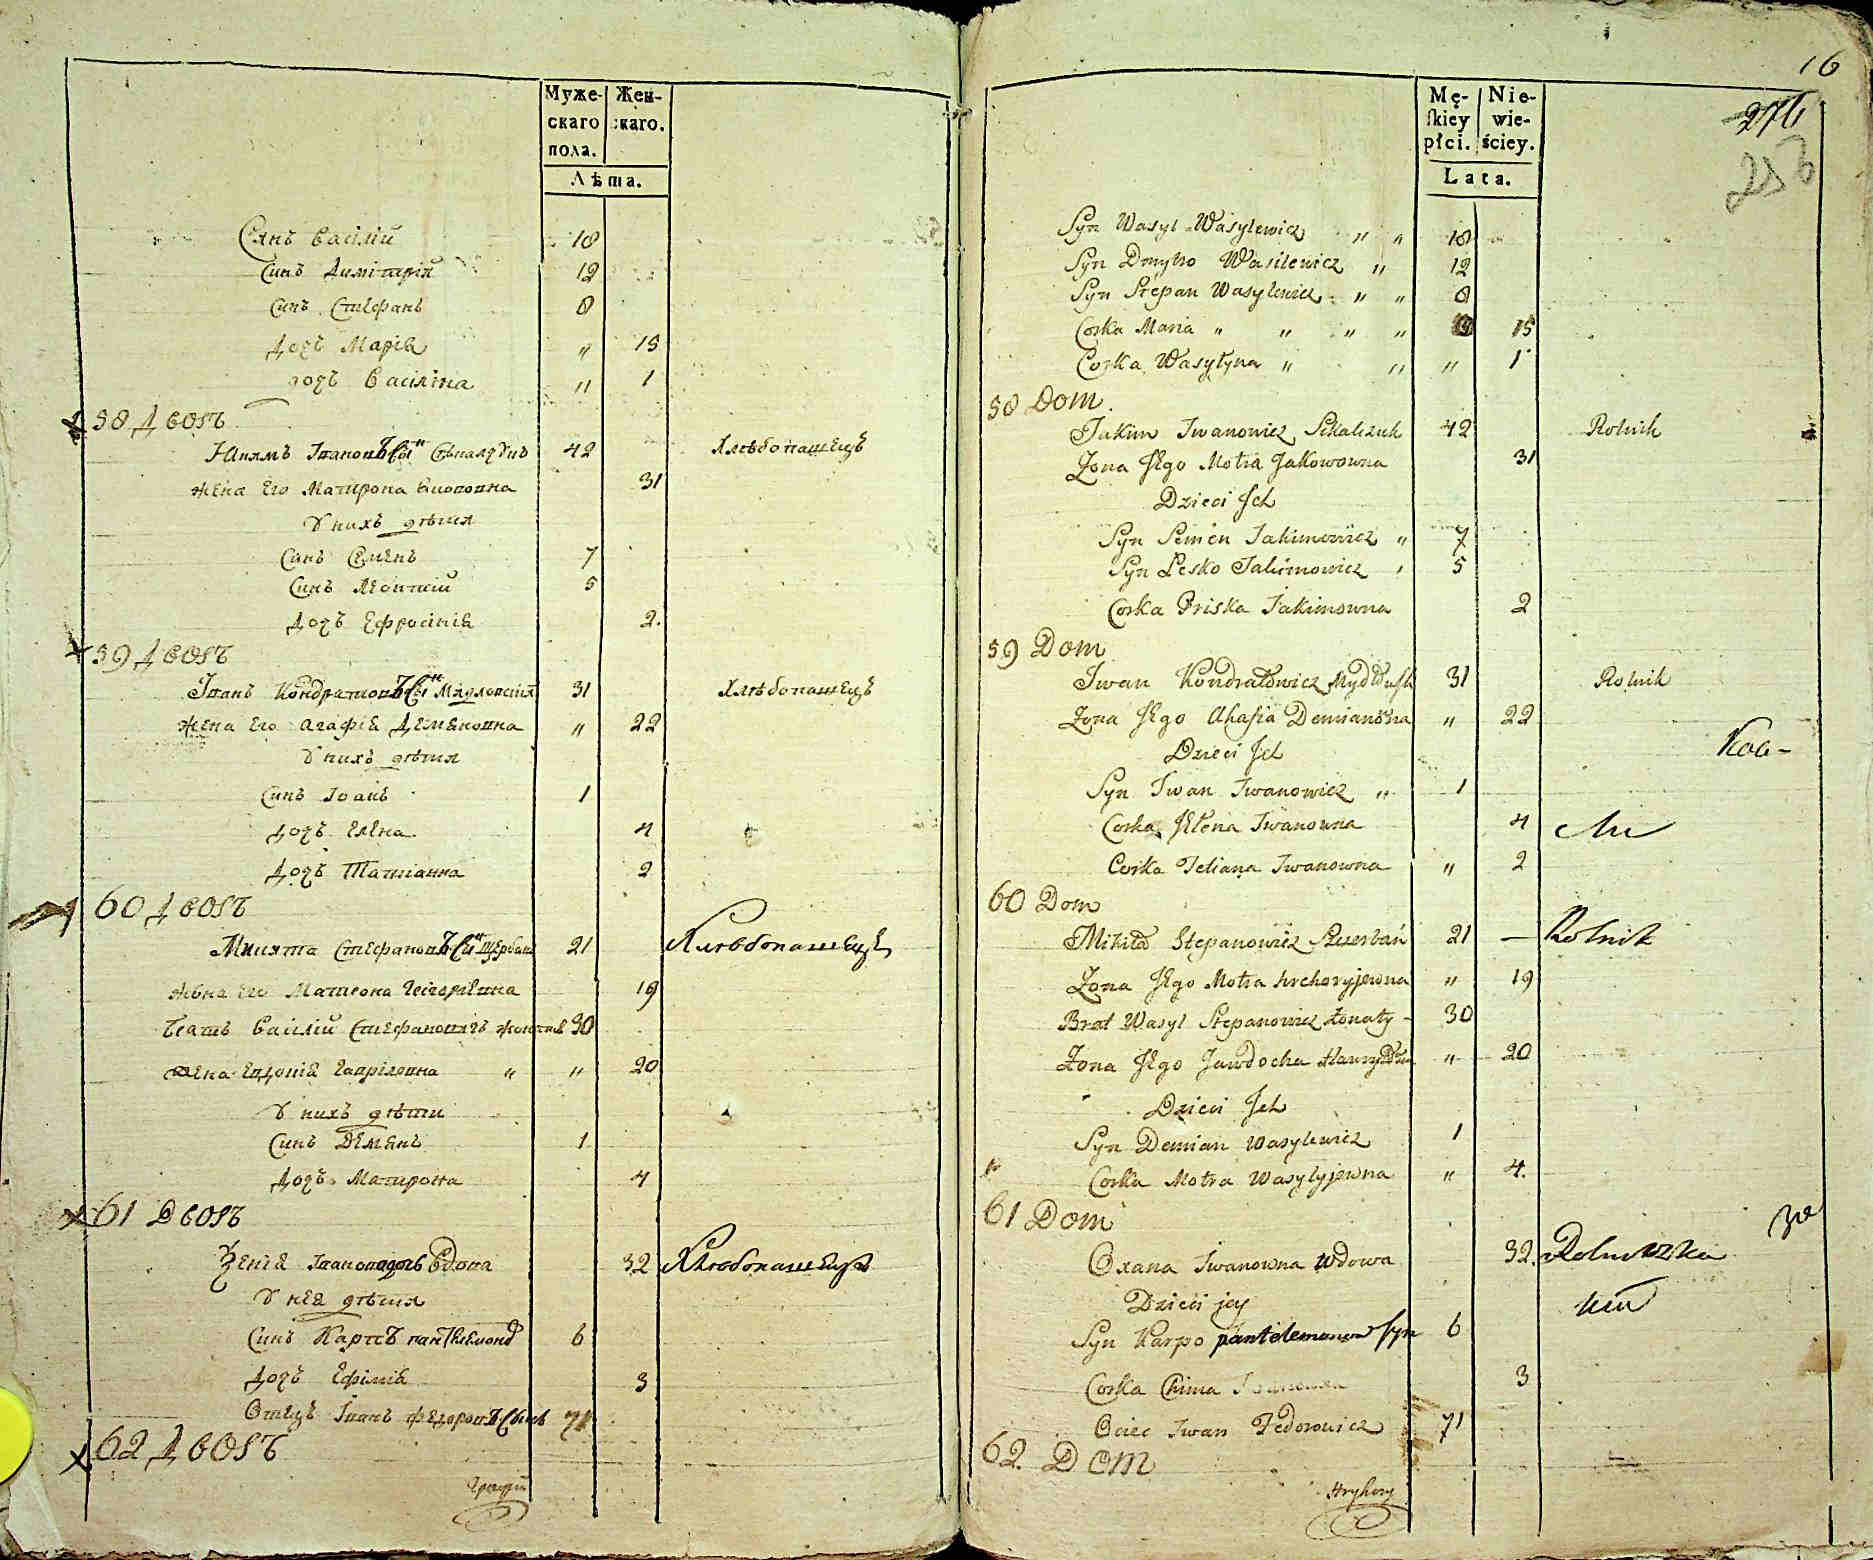 Муже-скаго пола. Жен-скаго.
Лѣта.
Синъ Василій 18
Синъ Димітрій 12
Синъ Стефанъ 8
Дочъ Марія " 15
дочъ Василіна " 1
58 Дворъ
Якимъ Івановъ Сынъ 42 Хлѣбопашецъ
Жена Его Матрона 31
У нихъ дѣти
Синъ Семенъ 7
Синъ Леонтій 5
Дочъ Ефросинія 2.
59 Дворъ
Іванъ Кондратовъ Сынъ 31 Хлѣбопашецъ
Жена Его Агафія Демяновна " 22
У нихъ дѣти
Синъ Іоанъ 1
Дочъ Елена 4
Дочъ Татіанна 2
60 Дворъ
Микита Стефановъ Сынъ Щербань 21 Хлѣбопашецъ
Жена Его Матрона 19
Братъ Василій Стефановичъ жонатъ 30
Жена Евдокія Гаврілова " " 20
У нихъ дѣти
Синъ Демянъ 1
Дочъ Матрона 4
61 Дворъ
Івановадочь Вдова 32 Хлѣбопашецъ
У нея дѣти
Синъ Карпъ 6
Дочъ Ефимія 3
Отецъ Іванъ Федоровъ Сынъ 71
62 Дворъ
Григорій
16
276
253
Mę-skiey płci. Nie-wie-ściey.
Lata.
Syn Wasyl Wasylewicz " " 18
Syn Dmytro Wasilewicz " 12
Syn Stepan Wasylewicz " " 8
Corka Maria " " " " 15
Corka Wasyłyna " " " 1
58 Dom
Jakim Iwanowicz 42 Rolnik
Zona Jego Motra Jakowowna 31
Dzieci Jch
Syn Semen Jakimowicz " 7
Syn Lesko Jakimowicz " 5
Corka Priska Jakimowna 2
59 Dom
Iwan Kondratowicz 31 Rolnik
Zona Jego Ahafia Demianowna " 22
Dzieci Jch
Syn Iwan Iwanowicz " 1
Corka Jełena Iwanowna 4
Corka Tetiana Iwanowna " 2
60 Dom
Mikita Stepanowicz Szczerbań 21 — Rolnik
Zona Jego Motra hrehoryjewna " 19
Brat Wasyl Stepanowicz żonaty - 30
Zona Jego Jawdocha " 20
Dzieci Jch
Syn Demian Wasylewicz 1
Corka Motra Wasylyjewna " 4.
61 Dom
Oxana Iwanowna Wdowa 32. Rolniczka
Dzieci jey
Syn Karpo pantelemonow syn 6
Corka Chima 3
Ociec Iwan Fedorowicz 71
62. Dom
Hryhory